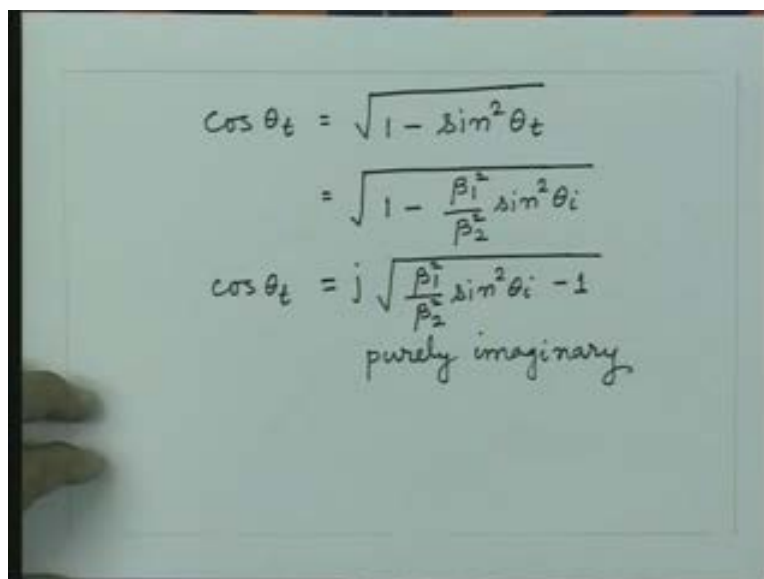 cos θt = √(1 - sin²θt)
= √(1 - β₁²/β₂² sin²θi)
cos θt = j √(β₁²/β₂² sin²θi - 1)
purely imaginary